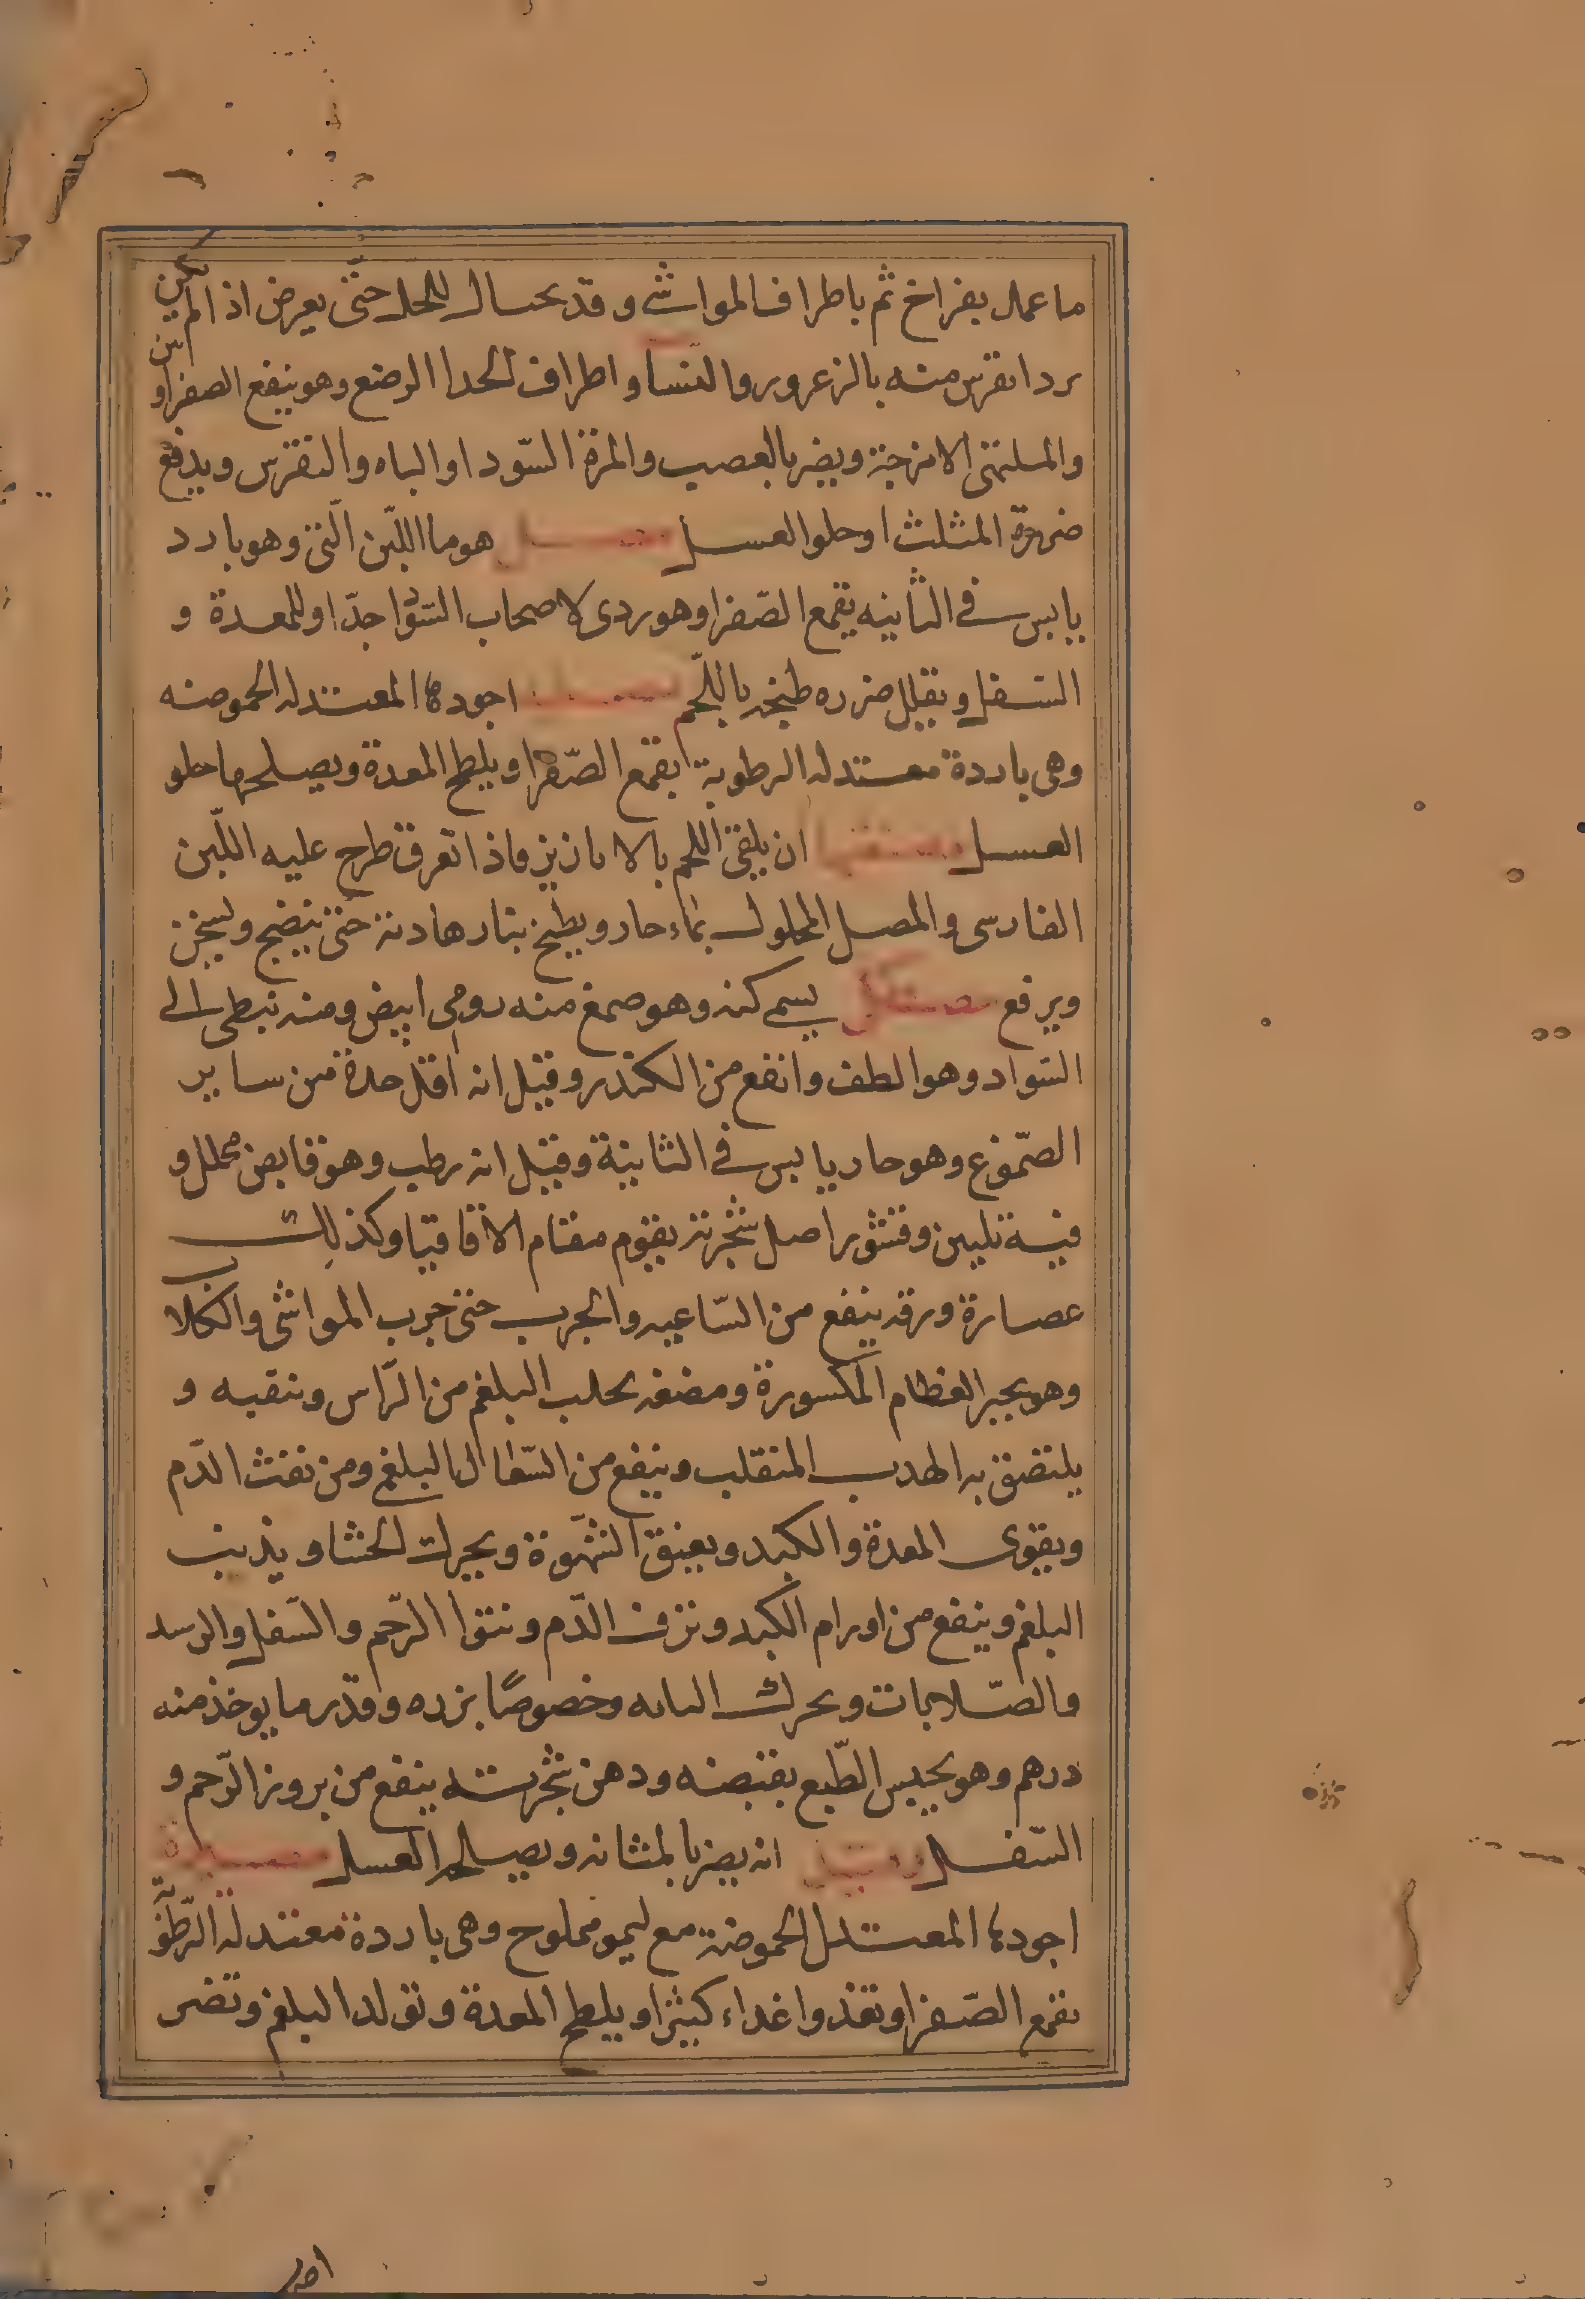 ما عمل بفراخ ثم باطراف المواشى وقد بحسال للحل حتى يعرض اذا لم يكن
بردا نقرس منه بالزعرور والنسا واطراف الحدا الرضع وهو ينفع الصفراو ين
والملتهى الامزجة ويضر بالعصب والمرة السودا والباه والنقرس ويدفع
ضرره المثلث او حلوا العسل مصل هو ما اللبن التى وهو بارد
يابس فى الثانيه يقمع الصفرا وهو ردى لاصحاب السودا جدا وللمعدة و
السفل ويقلل ضرره طبخه باللحم اجودها المعتدله الحموضه
وهى باردة معتدله الرطوبة يقمع الصفرا ويلطخ المعدة ويصلحها حلو
العسل وصنعتها ان يلقى اللحم بالابازيز فاذا تعرق طرح عليه اللبن
الفارسى والمصل المحلول بماء حار ويطبخ بنار هادئة حتى ينضج ويسخن
ويرفع مصتكى يسمى كنه وهو صمغ منه رومى ابيض ومنه نبطى الى
السواد وهو الطف وانفع من الكندر وقيل انه اقل حدة من ساير
الصموغ وهو حار يابس فى الثانية وقيل انه رطب وهو قابض محلل و
فيه تليين وقشور اصل شجرته يقوم مقام الاقاقيا وكذلك
عصارة ورقه ينفع من الساعيه والجرب حتى جرب المواشى والكلاب
وهو يجبر العظام المكسورة ومضغه يحلب البلغم من الراس وينقيه و
يلتصق به الهدب المنقلب وينفع من السعال البلغمى ومن نفث الدم
ويقوى المعدة والكبد ويعيق الشهوة ويحرك الجشا ويذيب
البلغم وينفع من اورام الكبد ونزف الدم ونتوا الرحم والسفل والرسد
والصلابات ويحرك الباه وخصوصا بزره وقدر ما يوخذ منه
درهم وهو يحبس الطبع بقبضه ودهن شجرته ينفع من بروز الرحم و
السفل وقيل انه يضر بالمثانه ويصلحه العسل مصيرة
اجودها المعتدل الحموضة مع ليمو مملوح وهى باردة معتدلة الرطوبة
يقمع الصفرا وتغذوا غداء كثيرا ويلطخ المعدة وتولد البلغم وتضر